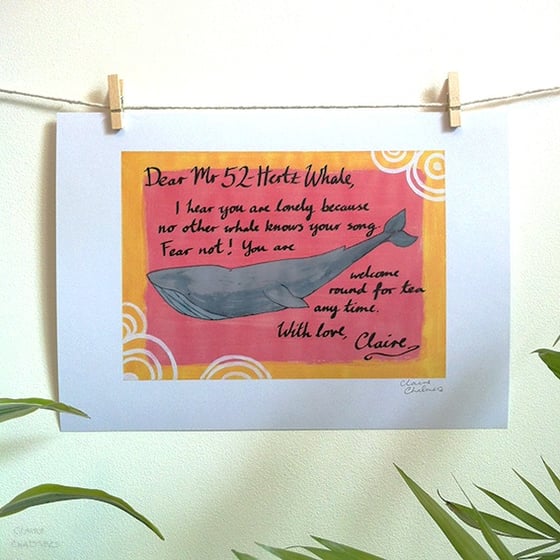 Dear Mr 52 Hertz Whale,
I hear you are lonely because
no other whale knows your song.
Fear not! You are
welcome
round for tea
any time.
With love,
Claire
Claire
Chalmers
CLAIRE
CHALMERS